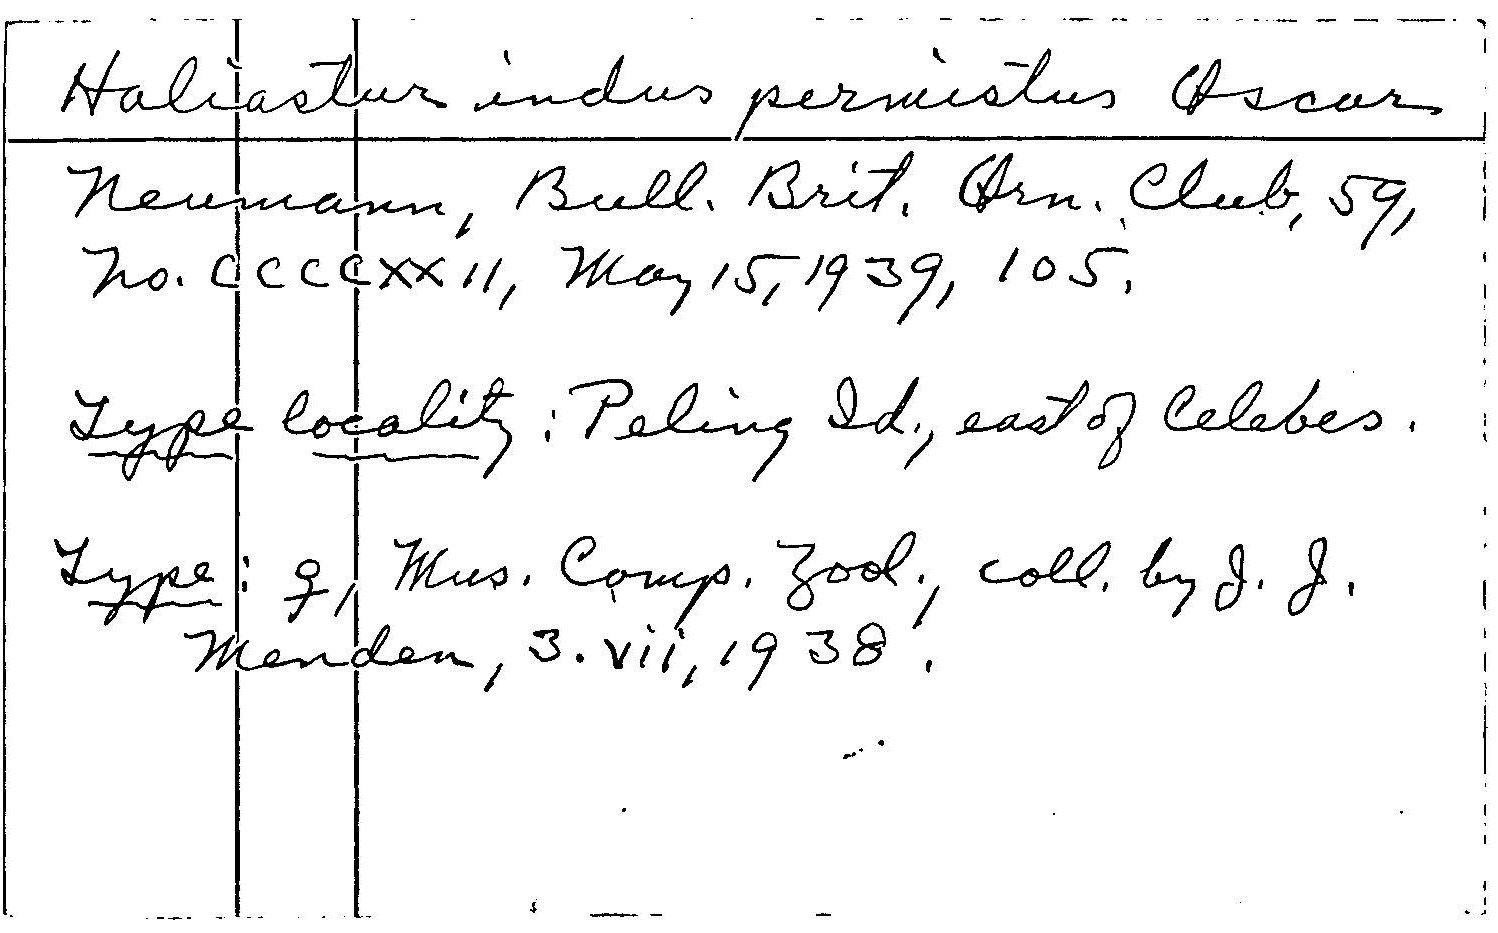 Haliastur indus permistus Oscar
Neumann, Bull. Brit. Orn. Club, 59,
No. CCCCXXII, May 15, 1939, 105.
Type locality: Peling Id., east of Celebes.
Type: ♀, Mus. Comp. Zool., coll. by J. J.
Menden, 3.vii, 1938.